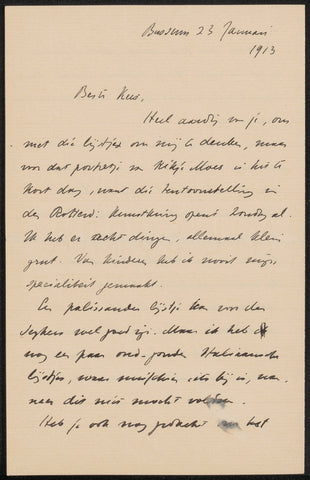 Bussum 23 Januari
1913
Beste Kees,
Heel aardig van je, om
met die lijstjes om mij te denken, maar
voor dat portretje van Kikje Maes is het te
kort dag, want die tentoonstelling in
den Rotterd: Kunstkring opent Zondag al.
Ik heb er acht dingen, allemaal klein
grut. Van kinderen heb ik nooit mijn
specialiteit gemaakt.
Een palissander lijstje kan voor den
Seghers wel goed zijn. Maar ik heb
nog een paar oud-gouden Italiaansche
lijstjes, waar misschien iets bij is,
naar dit niet mocht voldoen.
Heb je ook nog gedacht het